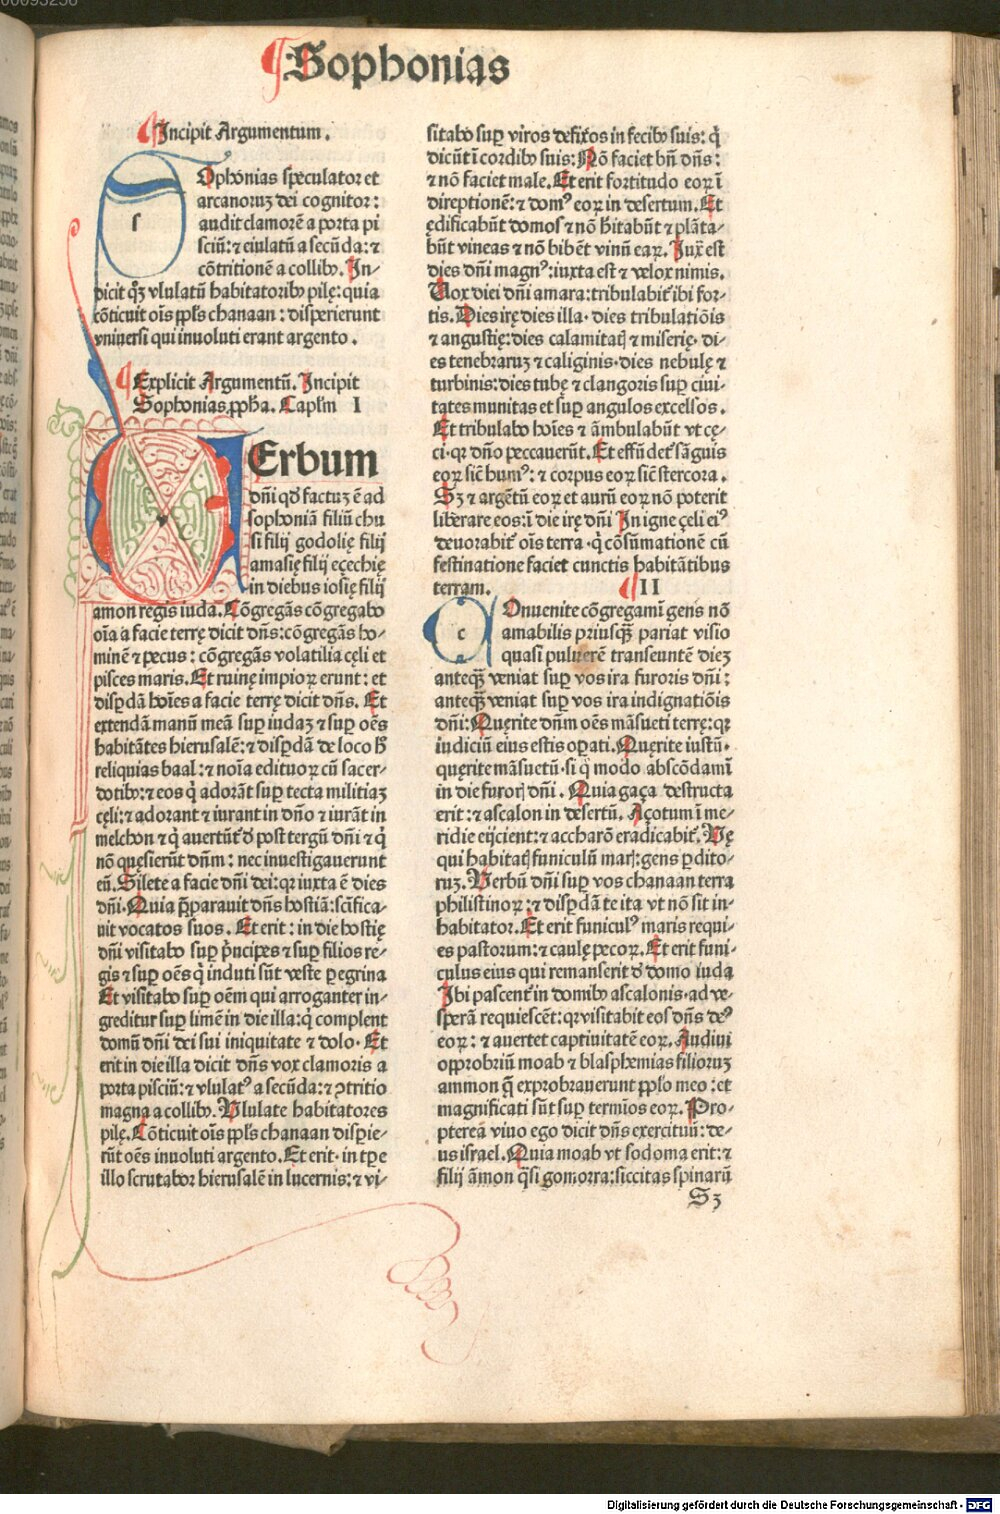 Sophonias
Incipit Argumentum.
Ophonias speculator et
arcanoruꝫ dei cognitor:
audit clamorē a porta pi
sciū: ⁊ eiulatū a secūda: ⁊
cōtritionē a collibꝰ. In-
dicit qͦꝫ vlulatū habitatoribꝰ pilę: quia
cōticuit oīs ppl̄s chanaan: disperierunt
vniuersi qui inuoluti erant argento.
Explicit Argumentū. Incipit
Sophonias ꝓpha. Capl̄m I
VErbum
dn̄i qd̄ factuꝫ ē ad
sophoniā filiū chu
si filij godolię filij
amasię filij eçechię
in diebus iosię filij
amon regis iuda. Cōgregās cōgregabo
oīa a facie terrę dicit dn̄s: cōgregās ho-
minē ⁊ pecus: cōgregās volatilia cęli et
pisces maris. Et ruinę impioꝝ erunt: et
disꝑdā hoīes a facie terrę dicit dn̄s. Et
extendā manū meā suꝑ iudaꝫ ⁊ suꝑ oēs
habitātes hierusalē: ⁊ disꝑdā de loco h̄
reliquias baal: ⁊ noīa edituoꝝ cū sacer-
dotibꝰ: ⁊ eos q̇ adorāt suꝑ tecta militiaꝫ
cęli: ⁊ adorant ⁊ iurant in dn̄o ⁊ iurāt in
melchon ⁊ q̇ auertūt̉ d̄ post tergū dn̄i ⁊ q̇
nō quęsierūt dn̄m: nec inuestigauerunt
eū. Silete a facie dn̄i dei: qꝛ iuxta ē dies
dn̄i. Quia p̄parauit dn̄s hostiā: scīfica-
uit vocatos suos. Et erit: in die hostię
dn̄i visitabo suꝑ p̄ncipes ⁊ suꝑ filios re-
gis ⁊ suꝑ oēs q̇ induti sūt veste ꝑegrina
Et visitabo suꝑ oēm qui arroganter in-
greditur suꝑ limē in die illa: q̇ complent
domū dn̄i dei sui iniquitate ⁊ dolo. Et
erit in die illa dicit dn̄s vox clamoris a
porta pisciū: ⁊ vlulatꝰ a secūda: ⁊ ꝯtritio
magna a collibꝰ. Vlulate habitatores
pilę. Cōticuit oīs ppl̄s chanaan disꝑie-
rūt oēs inuoluti argento. Et erit. in tꝑe
illo scrutabor hierusalē in lucernis: ⁊ vi-
sitabo suꝑ viros defixos in fecibꝰ suis: q̇
dicūt ī cordibꝰ suis: Nō faciet bn̄ dn̄s:
⁊ nō faciet male. Et erit fortitudo eoꝝ ī
direptionē: ⁊ domꝰ eoꝝ in desertum. Et
ędificabūt domos ⁊ nō hītabūt ⁊ plāta-
būt vineas ⁊ nō bibēt vinū eaꝝ. Iuxͣ est
dies dn̄i magnꝰ: iuxta est ⁊ velox nimis.
Vox diei dn̄i amara: tribulabit̉ ibi for-
tis. Dies irę dies illa. dies tribulatiōis
⁊ angustię: dies calamitatꝭ ⁊ miserię. di-
es tenebraruꝫ ⁊ caliginis. dies nebulę ⁊
turbinis: dies tubę ⁊ clangoris suꝑ ciui-
tates munitas et suꝑ angulos excelsos.
Et tribulabo hoīes ⁊ āmbulabūt vt cę-
ci. qꝛ dn̄o peccauerūt. Et effūdet̉ sāguis
eoꝝ sic̄ humꝰ: ⁊ corpus eoꝝ sic̄ stercora.
Sꝫ ⁊ argētū eoꝝ et aurū eoꝝ nō poterit
liberare eos: ī die irę dn̄i In igne çeli eiꝰ
deuorabit̉ oīs terra. q̇ cōsūmationē cū
festinatione faciet cunctis habitātibus
terram. II
COnuenite cōgregamī gens nō
amabilis priusqꝫ pariat visio
quasi puluerē transeuntē dieꝫ
anteqꝫ veniat suꝑ vos ira furoris dn̄i:
anteqꝫ veniat suꝑ vos ira indignatiōis
dn̄i: Quęrite dn̄m oēs māsueti terrę: qꝛ
iudiciū eius estis oꝑati. Quęrite iustū.
quęrite māsuetū. si q̇ modo abscōdamī
in die furorꝭ dn̄i. Quia gaça destructa
erit: ⁊ ascalon in desertū. Açotum ī me-
ridie eijcient: ⁊ accharō eradicabit̉. Vę
qui habitatꝭ funiculū marꝭ: gens ꝑdito-
ruꝫ. Verbū dn̄i suꝑ vos chanaan terra
philistinoꝝ: ⁊ disꝑdā te ita vt nō sit in-
habitator. Et erit funiculꝰ maris requi-
es pastorum: ⁊ caulę pecoꝝ. Et erit funi-
culus eius qui remanserit d̄ domo iuda
Ibi pascent̉ in domibꝰ ascalonis. ad ve-
sperā requiescēt: qꝛ visitabit eos dn̄s deꝰ
eoꝝ: ⁊ auertet captiuitatē eoꝝ. Audiui
opprobriū moab ⁊ blasphemias filioruꝫ
ammon q̄ exprobrauerunt ppl̄o meo: et
magnificati sūt suꝑ termīos eoꝝ. Pro-
ptereā viuo ego dicit dn̄s exercituū: de-
us israel. Quia moab vt sodoma erit: ⁊
filij āmon q̇si gomorra: siccitas spinarū
Sꝫ
Digitalisierung gefördert durch die Deutsche Forschungsgemeinschaft - DFG